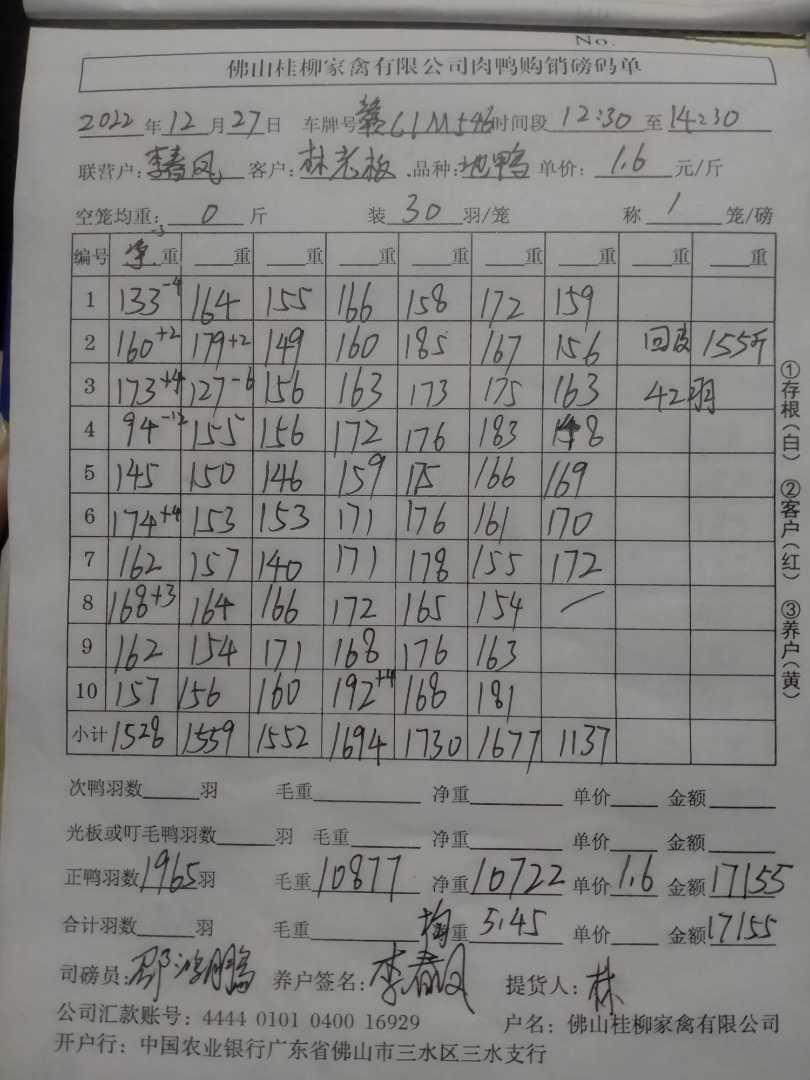 No.
佛山桂柳家禽有限公司肉鸭购销磅码单
2022年12月27日 车牌号赣C1M546时间段12:30至14:30
联营户:李春风 客户:林老板 品种:地鸭 单价:1.6元/斤
空笼均重:0斤 装30羽/笼 称1笼/磅
编号 净重 -3 重 重 重 重 重 重 重 重
1 133-4 164 155 166 158 172 159
2 160+2 179+2 149 160 185 167 156 回皮 155斤
3 173+4 127-6 156 163 173 175 163 42羽
4 94-12 155 156 172 176 183 148
5 145 150 146 159 175 166 169
6 174+4 153 153 171 176 161 170
7 162 157 140 171 178 155 172
8 168+3 164 166 172 165 154 /
9 162 154 171 168 176 163
10 157 156 160 192+4 168 181
小计 1528 1559 1552 1694 1730 1677 1137
次鸭羽数 羽 毛重 净重 单价 金额
光板或叮毛鸭羽数 羽 毛重 净重 单价 金额
正鸭羽数1965羽 毛重10877 净重10722 单价1.6 金额17155
合计羽数 羽 毛重 均重5.45 单价 金额17155
司磅员:邵鸿鹏 养户签名:李春风 提货人:林
公司汇款账号:4444 0101 0400 16929 户名:佛山桂柳家禽有限公司
开户行:中国农业银行广东省佛山市三水区三水支行
①存根(白) ②客户(红) ③养户(黄)